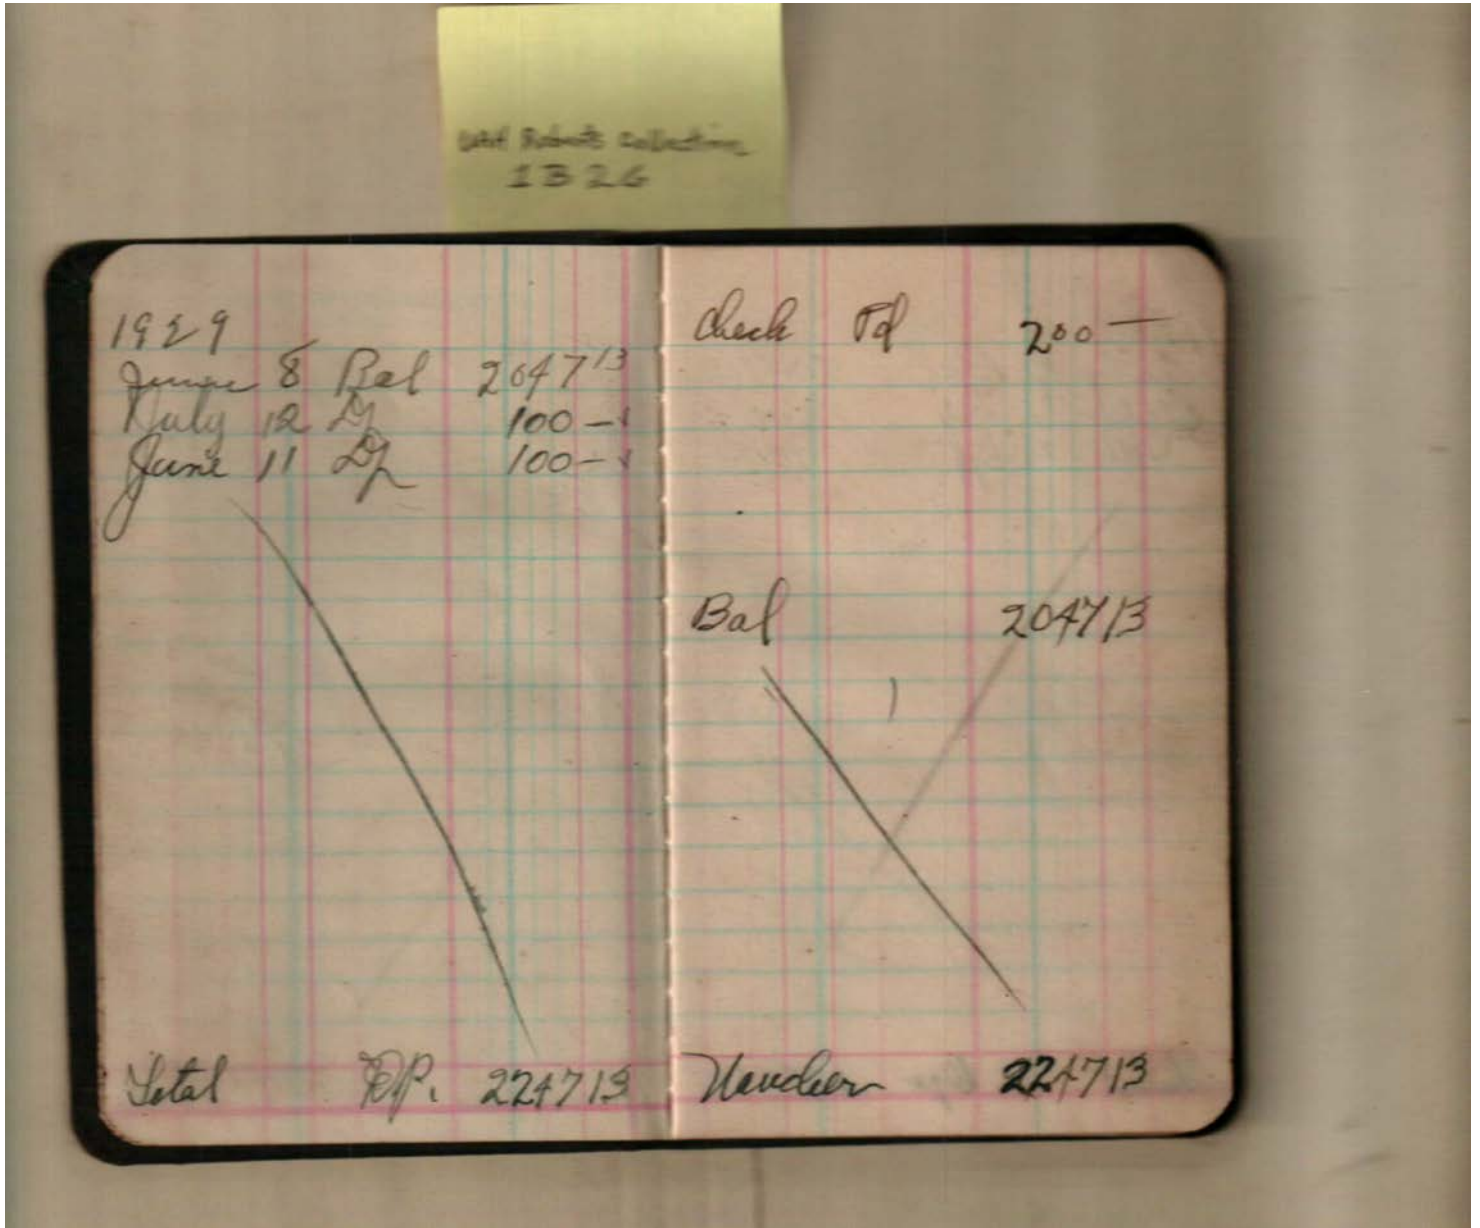 UAH Roberts Collection
1B 2G
1929
June 8 Bal 2047 13
July 12 Dp 100 -
June 11 Dp 100 -
Total DP. 2247 13
Check Pd 200 -
Bal 2047 13
2247 13